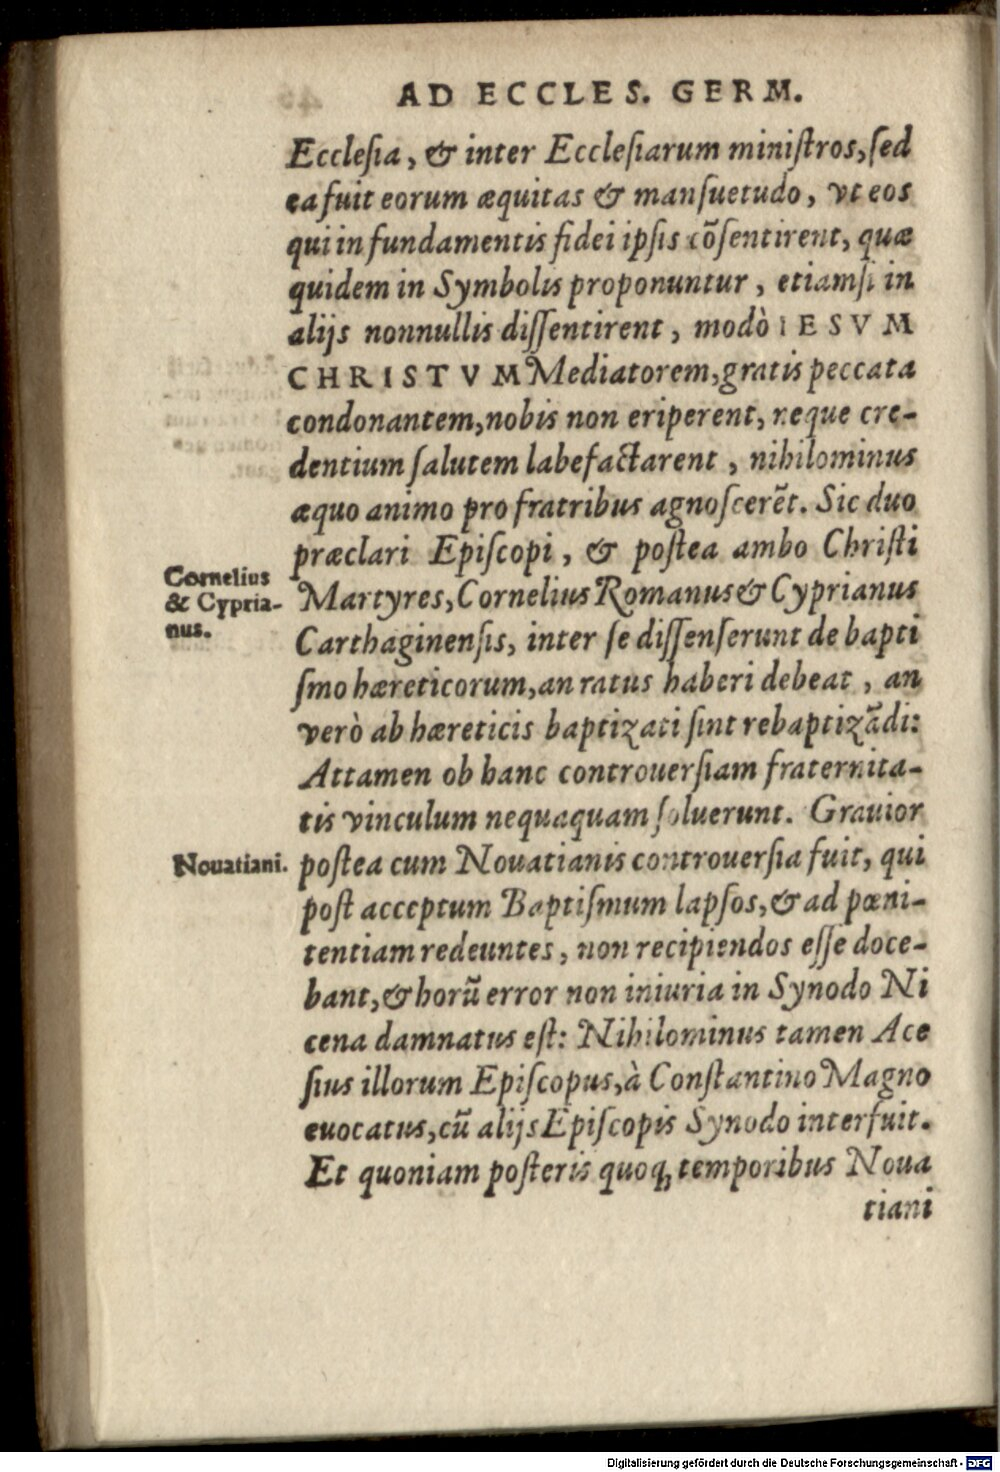 AD ECCLES. GERM.
Eccleſia, & inter Eccleſiarum miniſtros, ſed
ea fuit eorum æquitas & manſuetudo, vt eos
qui in fundamentis fidei ipſis cõſentirent, quæ
quidem in Symbolis proponuntur, etiamſi in
alijs nonnullis diſſentirent, modò IESVM
CHRISTVM Mediatorem, gratis peccata
condonantem, nobis non eriperent, neque cre-
dentium ſalutem labefactarent, nihilominus
æquo animo pro fratribus agnoſcerẽt. Sic duo
præclari Epiſcopi, & poſtea ambo Chriſti
Cornelius
& Cypria-
nus.
Martyres, Cornelius Romanus & Cyprianus
Carthaginenſis, inter ſe diſſenſerunt de bapti
ſmo hæreticorum, an ratus haberi debeat, an
verò ab hæreticis baptizati ſint rebaptizãdi:
Attamen ob hanc controuerſiam fraternita-
tis vinculum nequaquam ſoluerunt. Grauior
Nouatiani.
poſtea cum Nouatianis controuerſia fuit, qui
poſt acceptum Baptiſmum lapſos, & ad pœni-
tentiam redeuntes, non recipiendos eſſe doce-
bant, & horũ error non iniuria in Synodo Ni
cena damnatus eſt: Nihilominus tamen Ace
ſius illorum Epiſcopus, à Conſtantino Magno
euocatus, cũ alijs Epiſcopis Synodo interfuit.
Et quoniam poſteris quoq; temporibus Noua
tiani
Digitalisierung gefördert durch die Deutsche Forschungsgemeinschaft - DFG